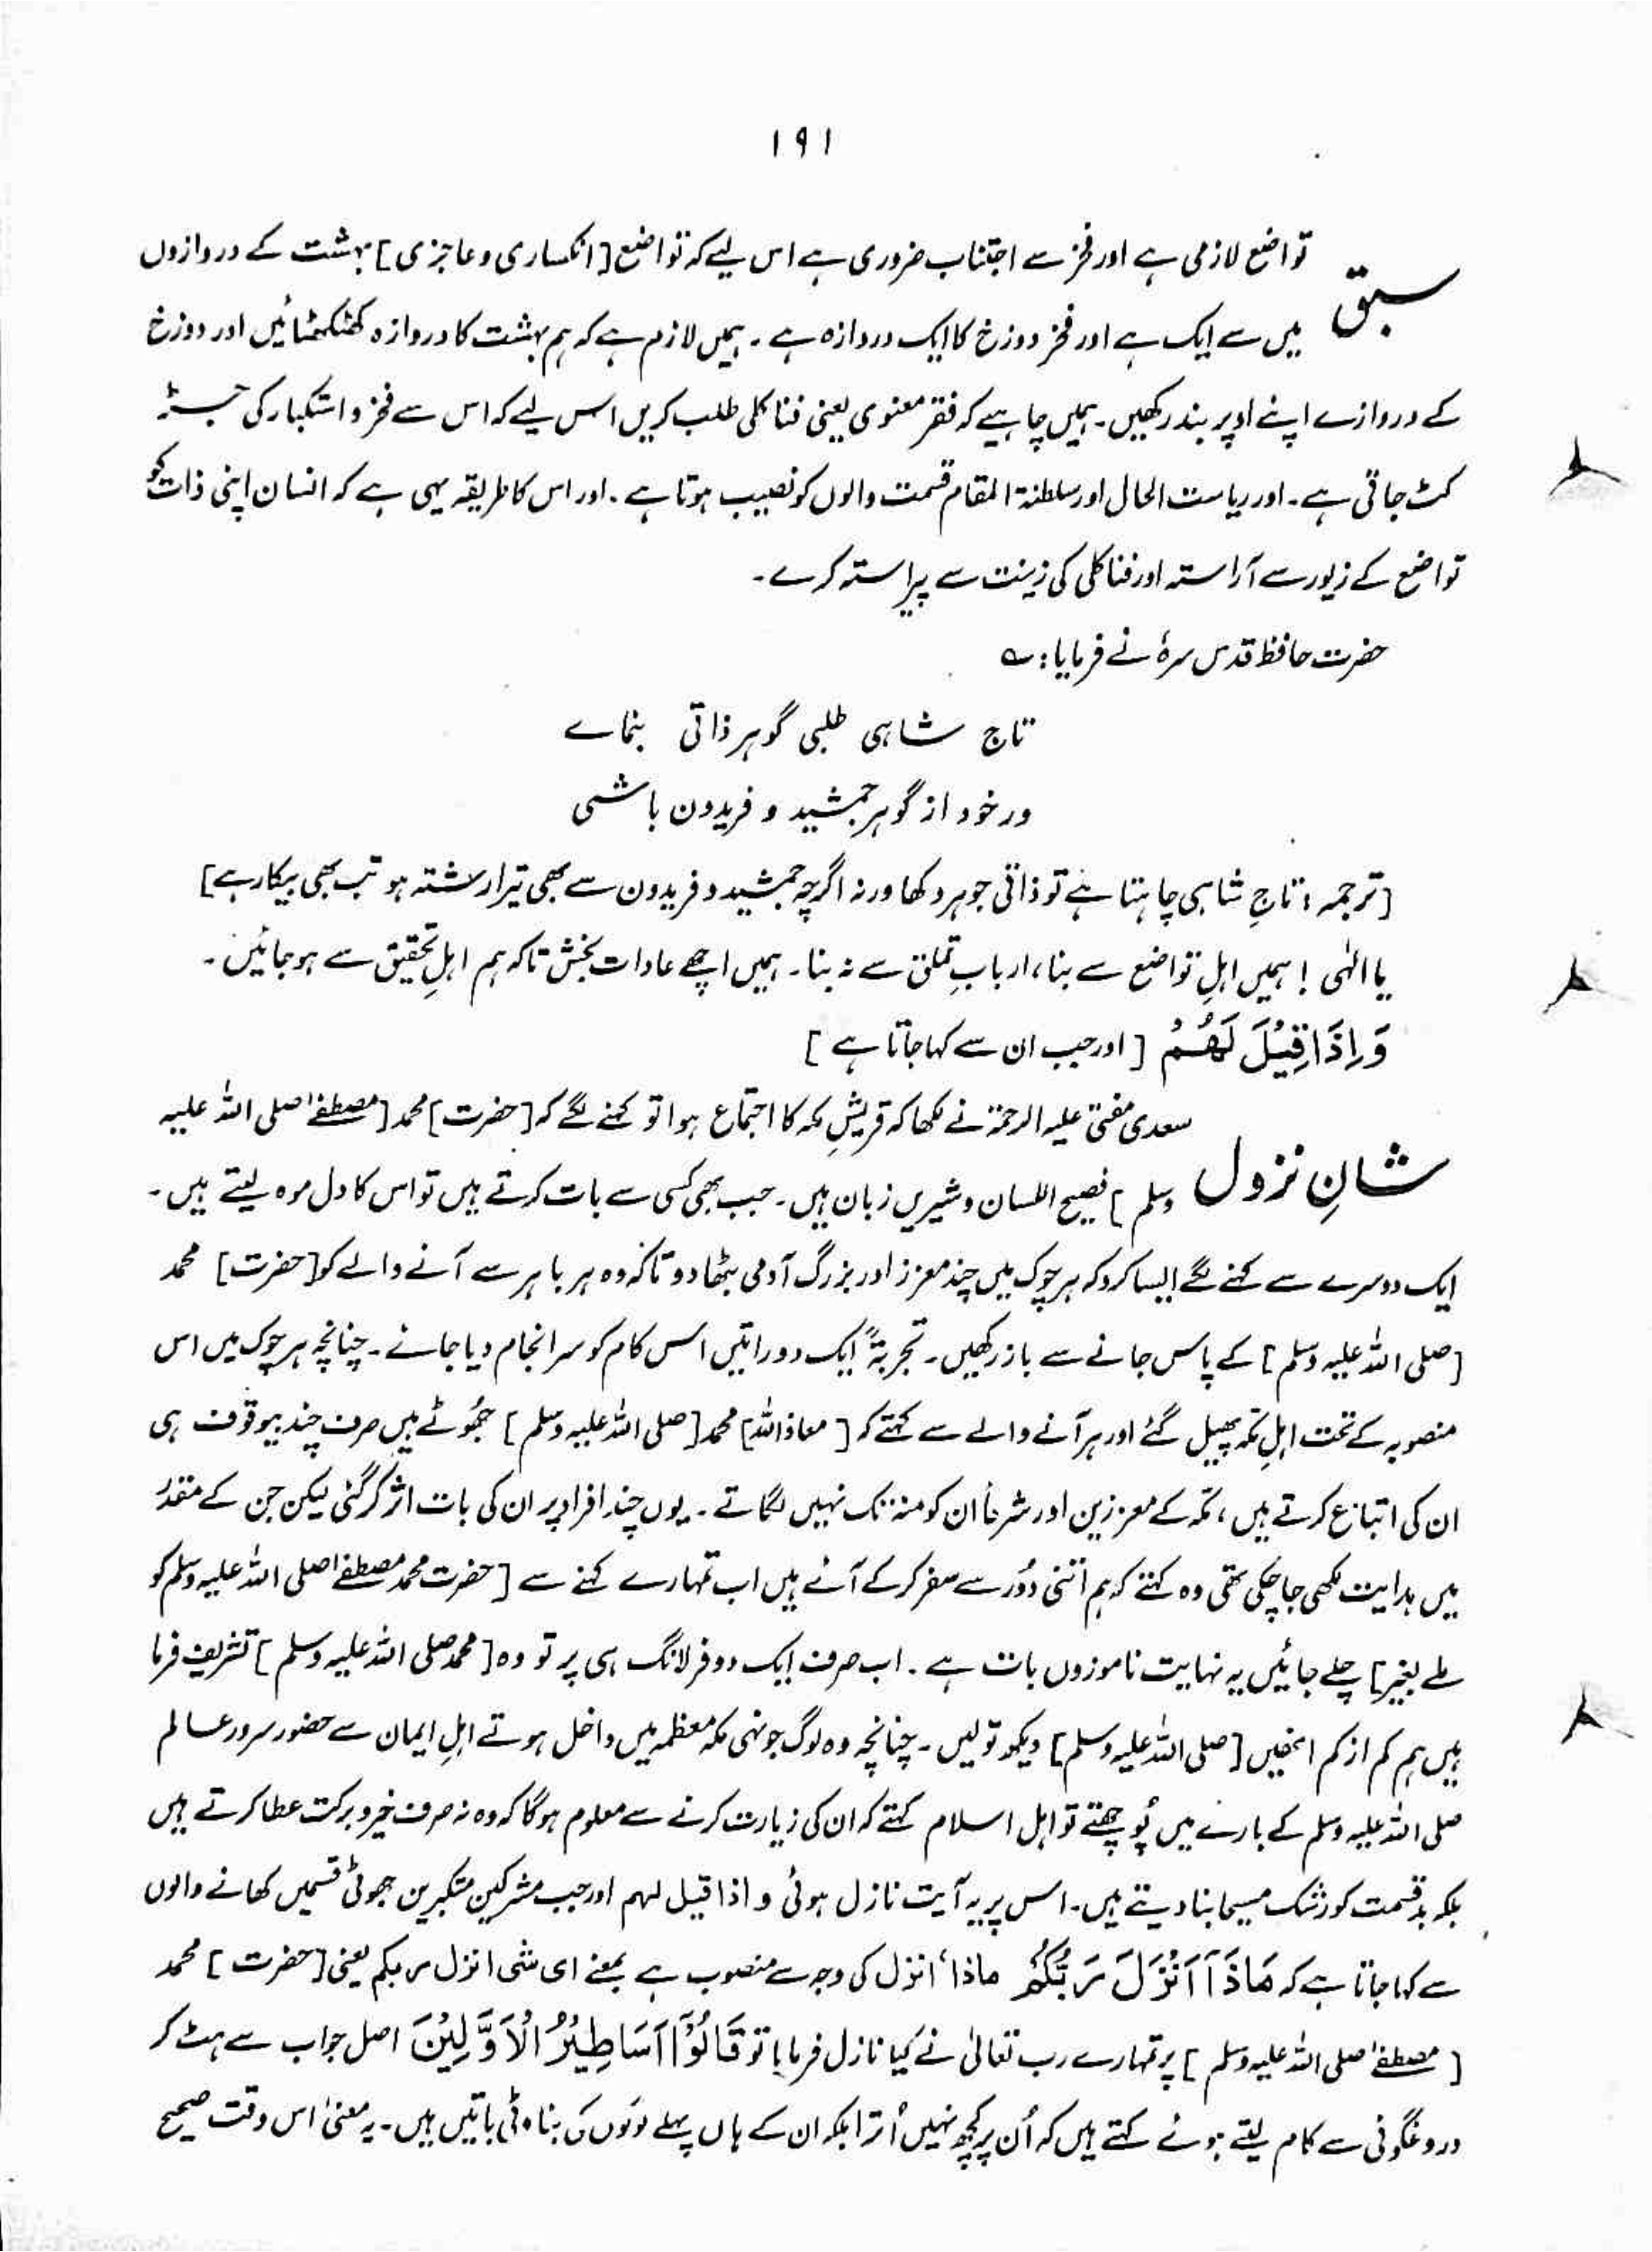 ۱۹۱
سبق تواضع لازمی ہے اور فخز سے اجتناب ضروری ہے اس لیے کہ تواضع [انکساری و عاجزی] بہشت کے دروازوں
میں سے ایک ہے اور فخز دوزخ کا ایک دروازہ ہے ۔ ہمیں لازم ہے کہ ہم بہشت کا دروازہ کھٹکھٹائیں اور دوزخ
کے دروازے اپنے اوپر بند رکھیں ۔ ہمیں چاہیے کہ فقر معنوی یعنی فنا کلی طلب کریں اس لیے کہ اس سے فخز و استکبار کی جڑ
کٹ جاتی ہے ۔ اور ریاست الحال اور سلطنۃ المقام قسمت والوں کو نصیب ہوتا ہے ۔ اور اس کا طریقہ یہی ہے کہ انسان اپنی ذات کو
تواضع کے زیور سے آراستہ اور فنا کلی کی زینت سے پیراستہ کرے ۔
حضرت حافظ قدس سرہٗ نے فرمایا : ؎
تاج شاہی طلبی گوہر ذاتی بنماے
ور خود از گوہر جمشید و فریدون باشی
[ترجمہ : تاجِ شاہی چاہتا ہے تو ذاتی جوہر دکھا ورنہ اگرچہ جمشید و فریدون سے بھی تیرا رشتہ ہو تب بھی بیکار ہے]
یا الٰہی ! ہمیں اہلِ تواضع سے بنا، اربابِ تملق سے نہ بنا ۔ ہمیں اچھے عادات بخش تاکہ ہم اہلِ تحقیق سے ہو جائیں ۔
وَ اِذَا قِیْلَ لَھُمْ [ اور جب ان سے کہا جاتا ہے ]
شانِ نزول سعدی مفتی علیہ الرحمۃ نے لکھا کہ قریشِ مکہ کا اجتماع ہوا تو کہنے لگے کہ [حضرت] محمد [مصطفےٰ صلی اللہ علیہ
وسلم ] فصیح اللسان و شیریں زبان ہیں ۔ جب بھی کسی سے بات کرتے ہیں تو اس کا دل موہ لیتے ہیں ۔
ایک دوسرے سے کہنے لگے ایسا کرو کہ ہر چوک میں چند معزز اور بزرگ آدمی بٹھا دو تاکہ وہ ہر باہر سے آنے والے کو [حضرت] محمد
[صلی اللہ علیہ وسلم] کے پاس جانے سے باز رکھیں ۔ تجربۃً ایک دو راتیں اس کام کو سر انجام دیا جائے ۔ چنانچہ ہر چوک میں اس
منصوبہ کے تحت اہلِ مکہ پھیل گئے اور ہر آنے والے سے کہتے کہ [ معاذ اللہ] محمد [صلی اللہ علیہ وسلم ] جھُوٹے ہیں صرف چند بیوقوف ہی
ان کی اتباع کرتے ہیں ، مکہ کے معززین اور شرفأ ان کو منہ تک نہیں لگاتے ۔ یوں چند افراد پر ان کی بات اثر کر گئی لیکن جن کے مقدر
میں ہدایت لکھی جا چکی تھی وہ کہتے کہ ہم اتنی دُور سے سفر کر کے آئے ہیں اب تمہارے کہنے سے [ حضرت محمد مصطفےٰ صلی اللہ علیہ وسلم کو
ملے بغیر] چلے جائیں یہ نہایت ناموزوں بات ہے ۔ اب صرف ایک دو فرلانگ ہی پر تو وہ [محمد صلی اللہ علیہ وسلم ] تشریف فرما
ہیں ہم کم از کم انھیں [صلی اللہ علیہ وسلم] دیکھ تو لیں ۔ چنانچہ وہ لوگ جونہی مکہ معظمہ میں داخل ہوتے اہلِ ایمان سے حضور سرور عالم
صلی اللہ علیہ وسلم کے بارے میں پُوچھتے تو اہل اسلام کہتے کہ ان کی زیارت کرنے سے معلوم ہوگا کہ وہ نہ صرف خیر و برکت عطا کرتے ہیں
بلکہ بدقسمت کو رشک مسیحا بنا دیتے ہیں ۔ اس پر یہ آیت نازل ہوئی و اذا قیل لہم اور جب مشرکین متکبرین جھوٹی قسمیں کھانے والوں
سے کہا جاتا ہے کہ مَاذَآ اَنْزَلَ رَبُّکُمْ ماذا ٗ انزل کی وجہ سے منصوب ہے بمعنے ای شی انزل ربکم یعنی [حضرت ] محمد
[ مصطفےٰ صلی اللہ علیہ وسلم ] پر تمہارے رب تعالیٰ نے کیا نازل فرمایا تو قَالُوْٓا اَسَاطِیْرُ الْاَوَّلِیْنَ اصل جواب سے ہٹ کر
دروغگوئی سے کام لیتے ہوئے کہتے ہیں کہ اُن پر کچھ نہیں اُترا بلکہ ان کے ہاں پہلے لوگوں کی بناوٹی باتیں ہیں ۔ یہ معنیٰ اس وقت صحیح